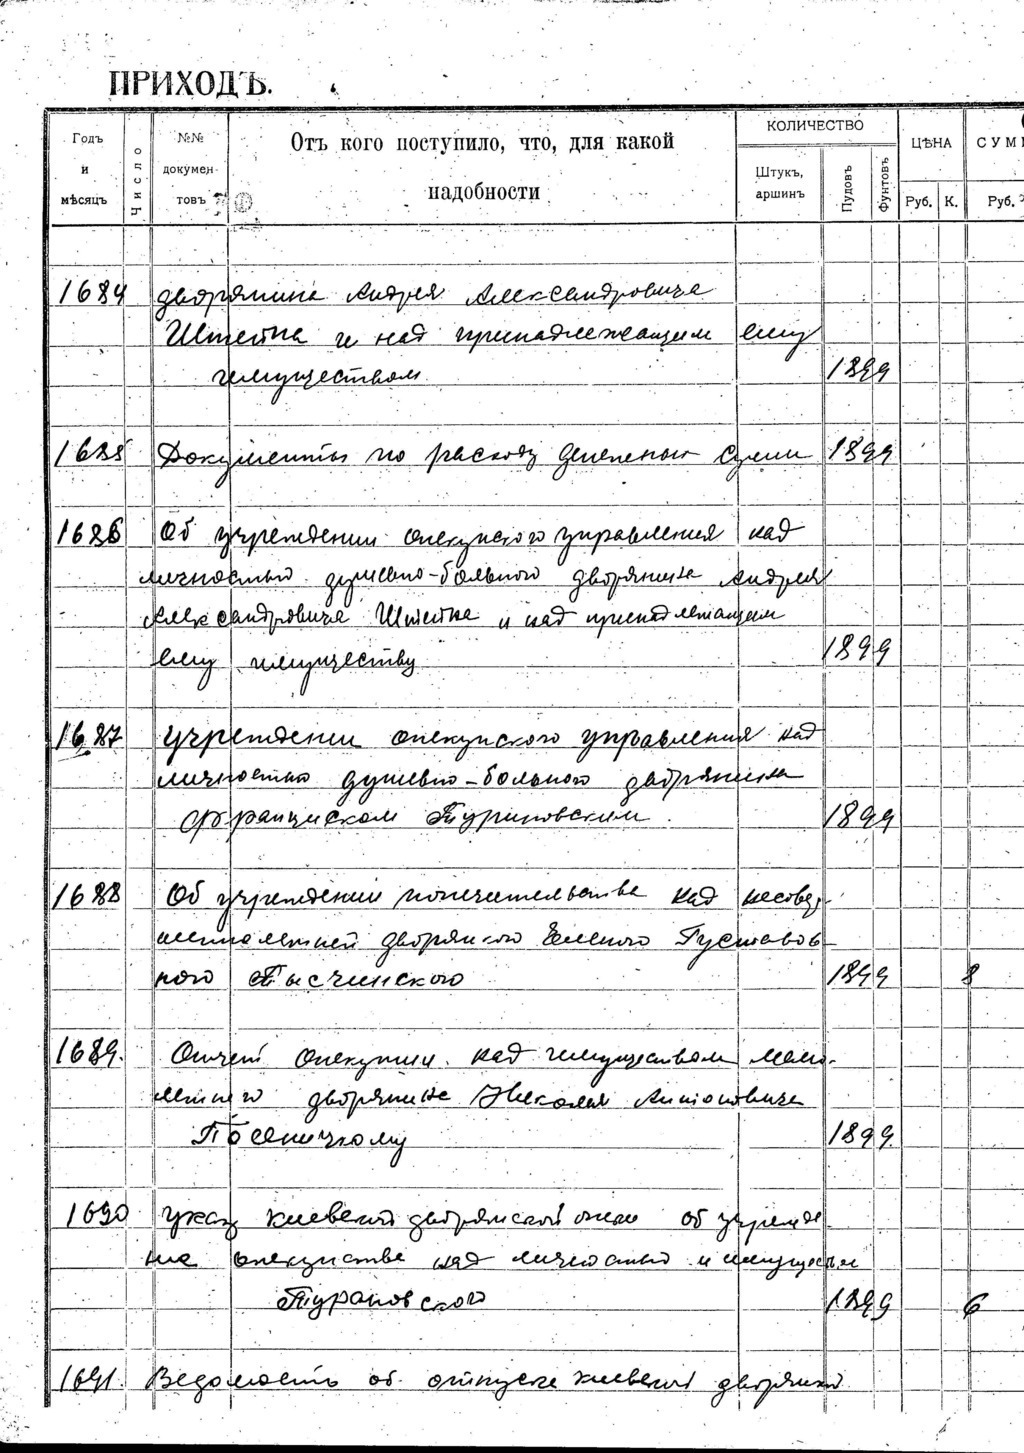 ПРИХОДЪ.
Годъ и мѣсяцъ
Число
№№ докумен-товъ
Отъ кого поступило, что, для какой надобности
КОЛИЧЕСТВО
Штукъ, аршинъ
Пудовъ
Фунтовъ
ЦѢНА
Руб. К.
СУМ
Руб.
1684 дворянина Андрея Александровича
Штейна и над принадлежащим ему
имуществом 1899
1685 Документы по расходу денежных сумм 1899
1686 Об учреждении опекунского управления над
личностью душевно-больного дворянина Андрея
Александровича Штейна и над принадлежащем
ему имуществу 1899
1687 Учреждении опекунского управления над
личностью душевно-больного дворянина
Францискам Туриновским 1899
1688 Об учреждении попечительства над несовер-
шеннолетней дворянкой Густавов-
ного Тысчинского 1899 8
1689. Отчет опекунши над имуществом мало-
летнего дворянина Николая Антоновича
1899
1690 Указ Киевской дворянской опеки об учрежде
ние опекунства над личностью и имуществом
Турановского 1899 6
1691. Ведомость об отпуске Киевской дворянской